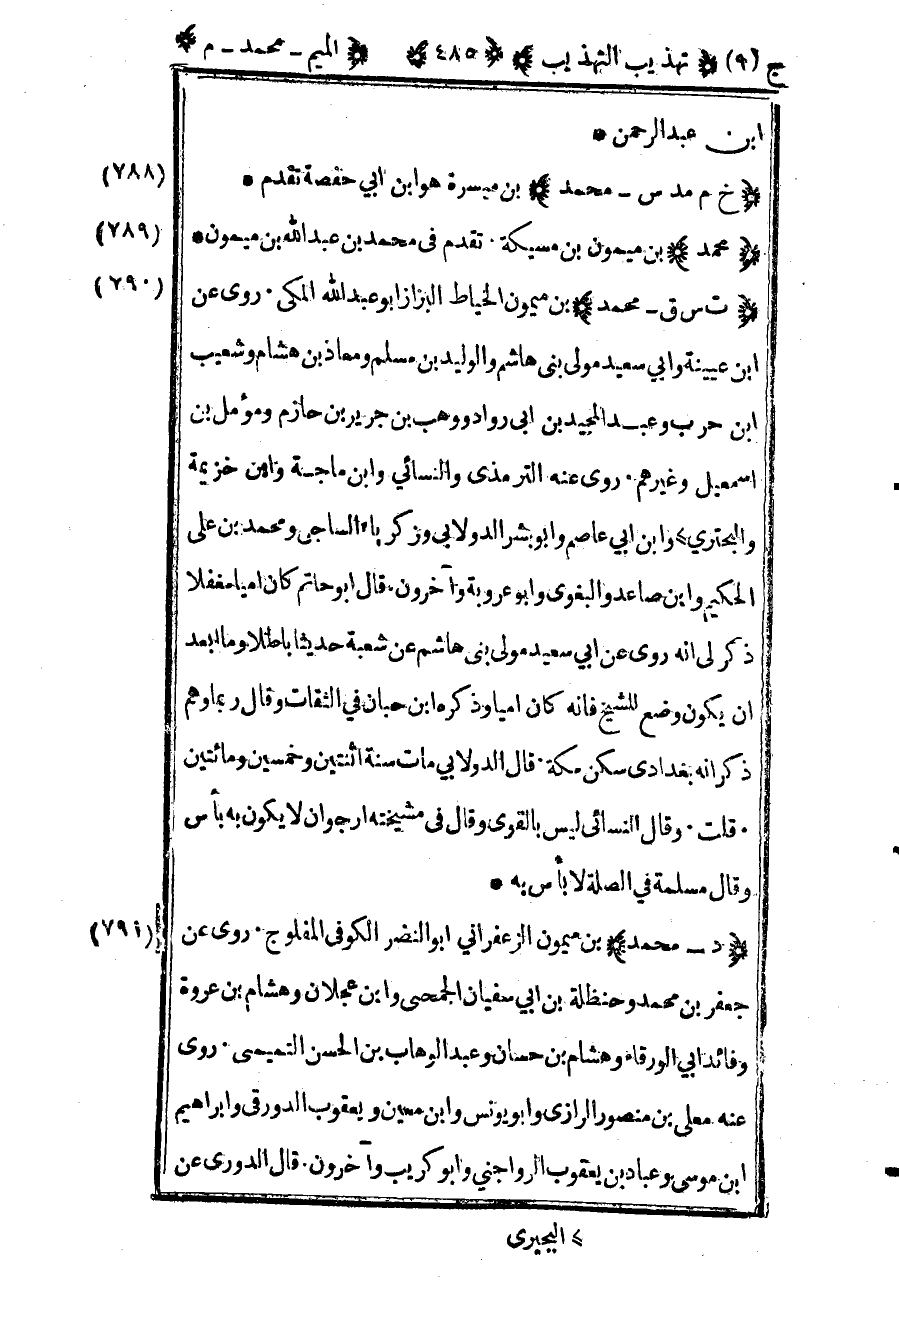 ج (٩) ﴿ تهذيب التهذيب ﴾ ﴿ ٤٨٥ ﴾ ﴿ الميم - محمد - م ﴾
ابن عبدالرحمن *
(٧٨٨) ﴿ خ م مد س - محمد ﴾ بن ميسرة هو ابن ابي حفصة تقدم *
(٧٨٩) ﴿ محمد ﴾ بن ميمون بن مسيكة . تقدم فى محمد بن عبدالله بن ميمون *
(٧٩٠) ﴿ ت س ق - محمد ﴾ بن ميمون الخياط البزاز ابو عبدالله المكى . روى عن
ابن عيينة وابي سعيد مولى بنى هاشم والوليد بن مسلم ومعاذ بن هشام وشعيب
ابن حرب وعبد المجيد بن ابى رواد ووهب بن جرير بن حازم ومؤمل بن
اسمعيل وغيرهم . روى عنه الترمذى والنسائي وابن ماجة وابن خزيمة
والبحتري > وابن ابي عاصم وابو بشر الدولابى وزكرياء الساجى ومحمد بن على
الحكيم وابن صاعد والبغوى وابو عروبة وآخرون . قال ابو حاتم كان اميا مغفلا
ذكر لى انه روى عن ابي سعيد مولى بنى هاشم عن شعبة حديثا باطلا وما ابعد
ان يكون وضع للشيخ فانه كان اميا وذكره ابن حبان في الثقات وقال ربما وهم
ذكر انه بغدادى سكن مكة . قال الدولابي مات سنة اثنتين وخمسين ومائتين
. قلت . وقال النسائى ليس بالقوى وقال فى مشيخته ارجو ان لا يكون به بأس
وقال مسلمة في الصلة لا بأس به *
(٧٩١) ﴿ د - محمد ﴾ بن ميمون الزعفراني ابو النضر الكوفى المفلوج . روى عن
جعفر بن محمد وحنظلة بن ابي سفيان الجمحى وابن عجلان وهشام بن عروة
وفائد ابي الورقاء وهشام بن حسان وعبد الوهاب بن الحسن التميمى . روى
عنه معلى بن منصور الرازى وابو يونس وابن معين ويعقوب الدورقى وابراهيم
ابن موسى وعباد بن يعقوب الرواجني وابو كريب وآخرون . قال الدورى عن
> البحيرى